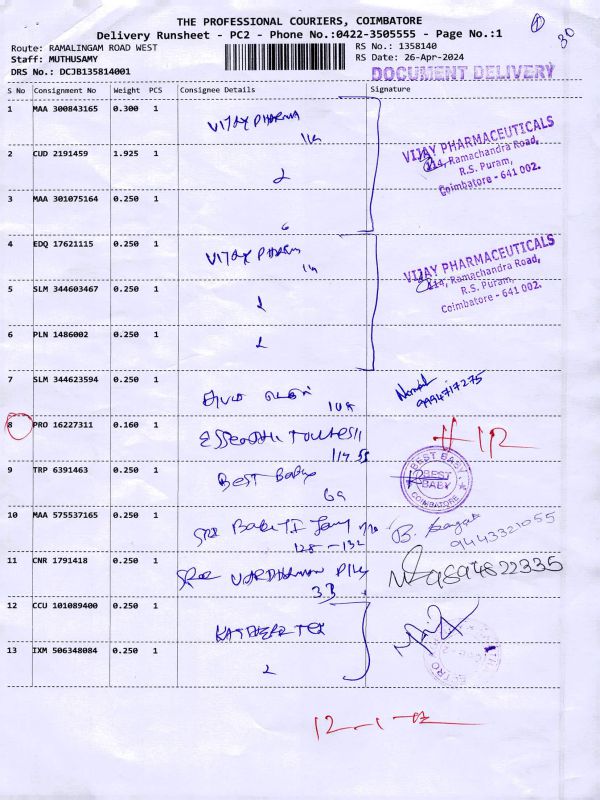 THE PROFESSIONAL COURIERS, COIMBATORE
Delivery Runsheet - PC2 - Phone No.:0422-3505555 - Page No.:1
1
80
Route: RAMALINGAM ROAD WEST
RS No.: 1358140
Staff: MUTHUSAMY
RS Date: 26-Apr-2024
DRS No.: DCJB135814001
DOCUMENT DELIVERY
S No Consignment No Weight PCS Consignee Details Signature
1 MAA 300843165 0.300 1 VIJAY PHARMA
VIJAY PHARMACEUTICALS
114, Ramachandra Road,
R.S. Puram,
Coimbatore - 641 002.
2 CUD 2191459 1.925 1
3 MAA 301075164 0.250 1
4 EDQ 17621115 0.250 1 VIJAY PHARMA
VIJAY PHARMACEUTICALS
114, Ramachandra Road,
R.S. Puram,
Coimbatore - 641 002.
5 SLM 344603467 0.250 1
6 PLN 1486002 0.250 1
7 SLM 344623594 0.250 1
9994717275
8 PRO 16227311 0.160 1
9 TRP 6391463 0.250 1 BEST BABY
BEST BABY
BEST
BABY
COIMBATORE
10 MAA 575537165 0.250 1
128-132
9443321055
11 CNR 1791418 0.250 1 SREE VARDHAMAN
33
9894822335
12 CCU 101089400 0.250 1
13 IXM 506348084 0.250 1
12-1-